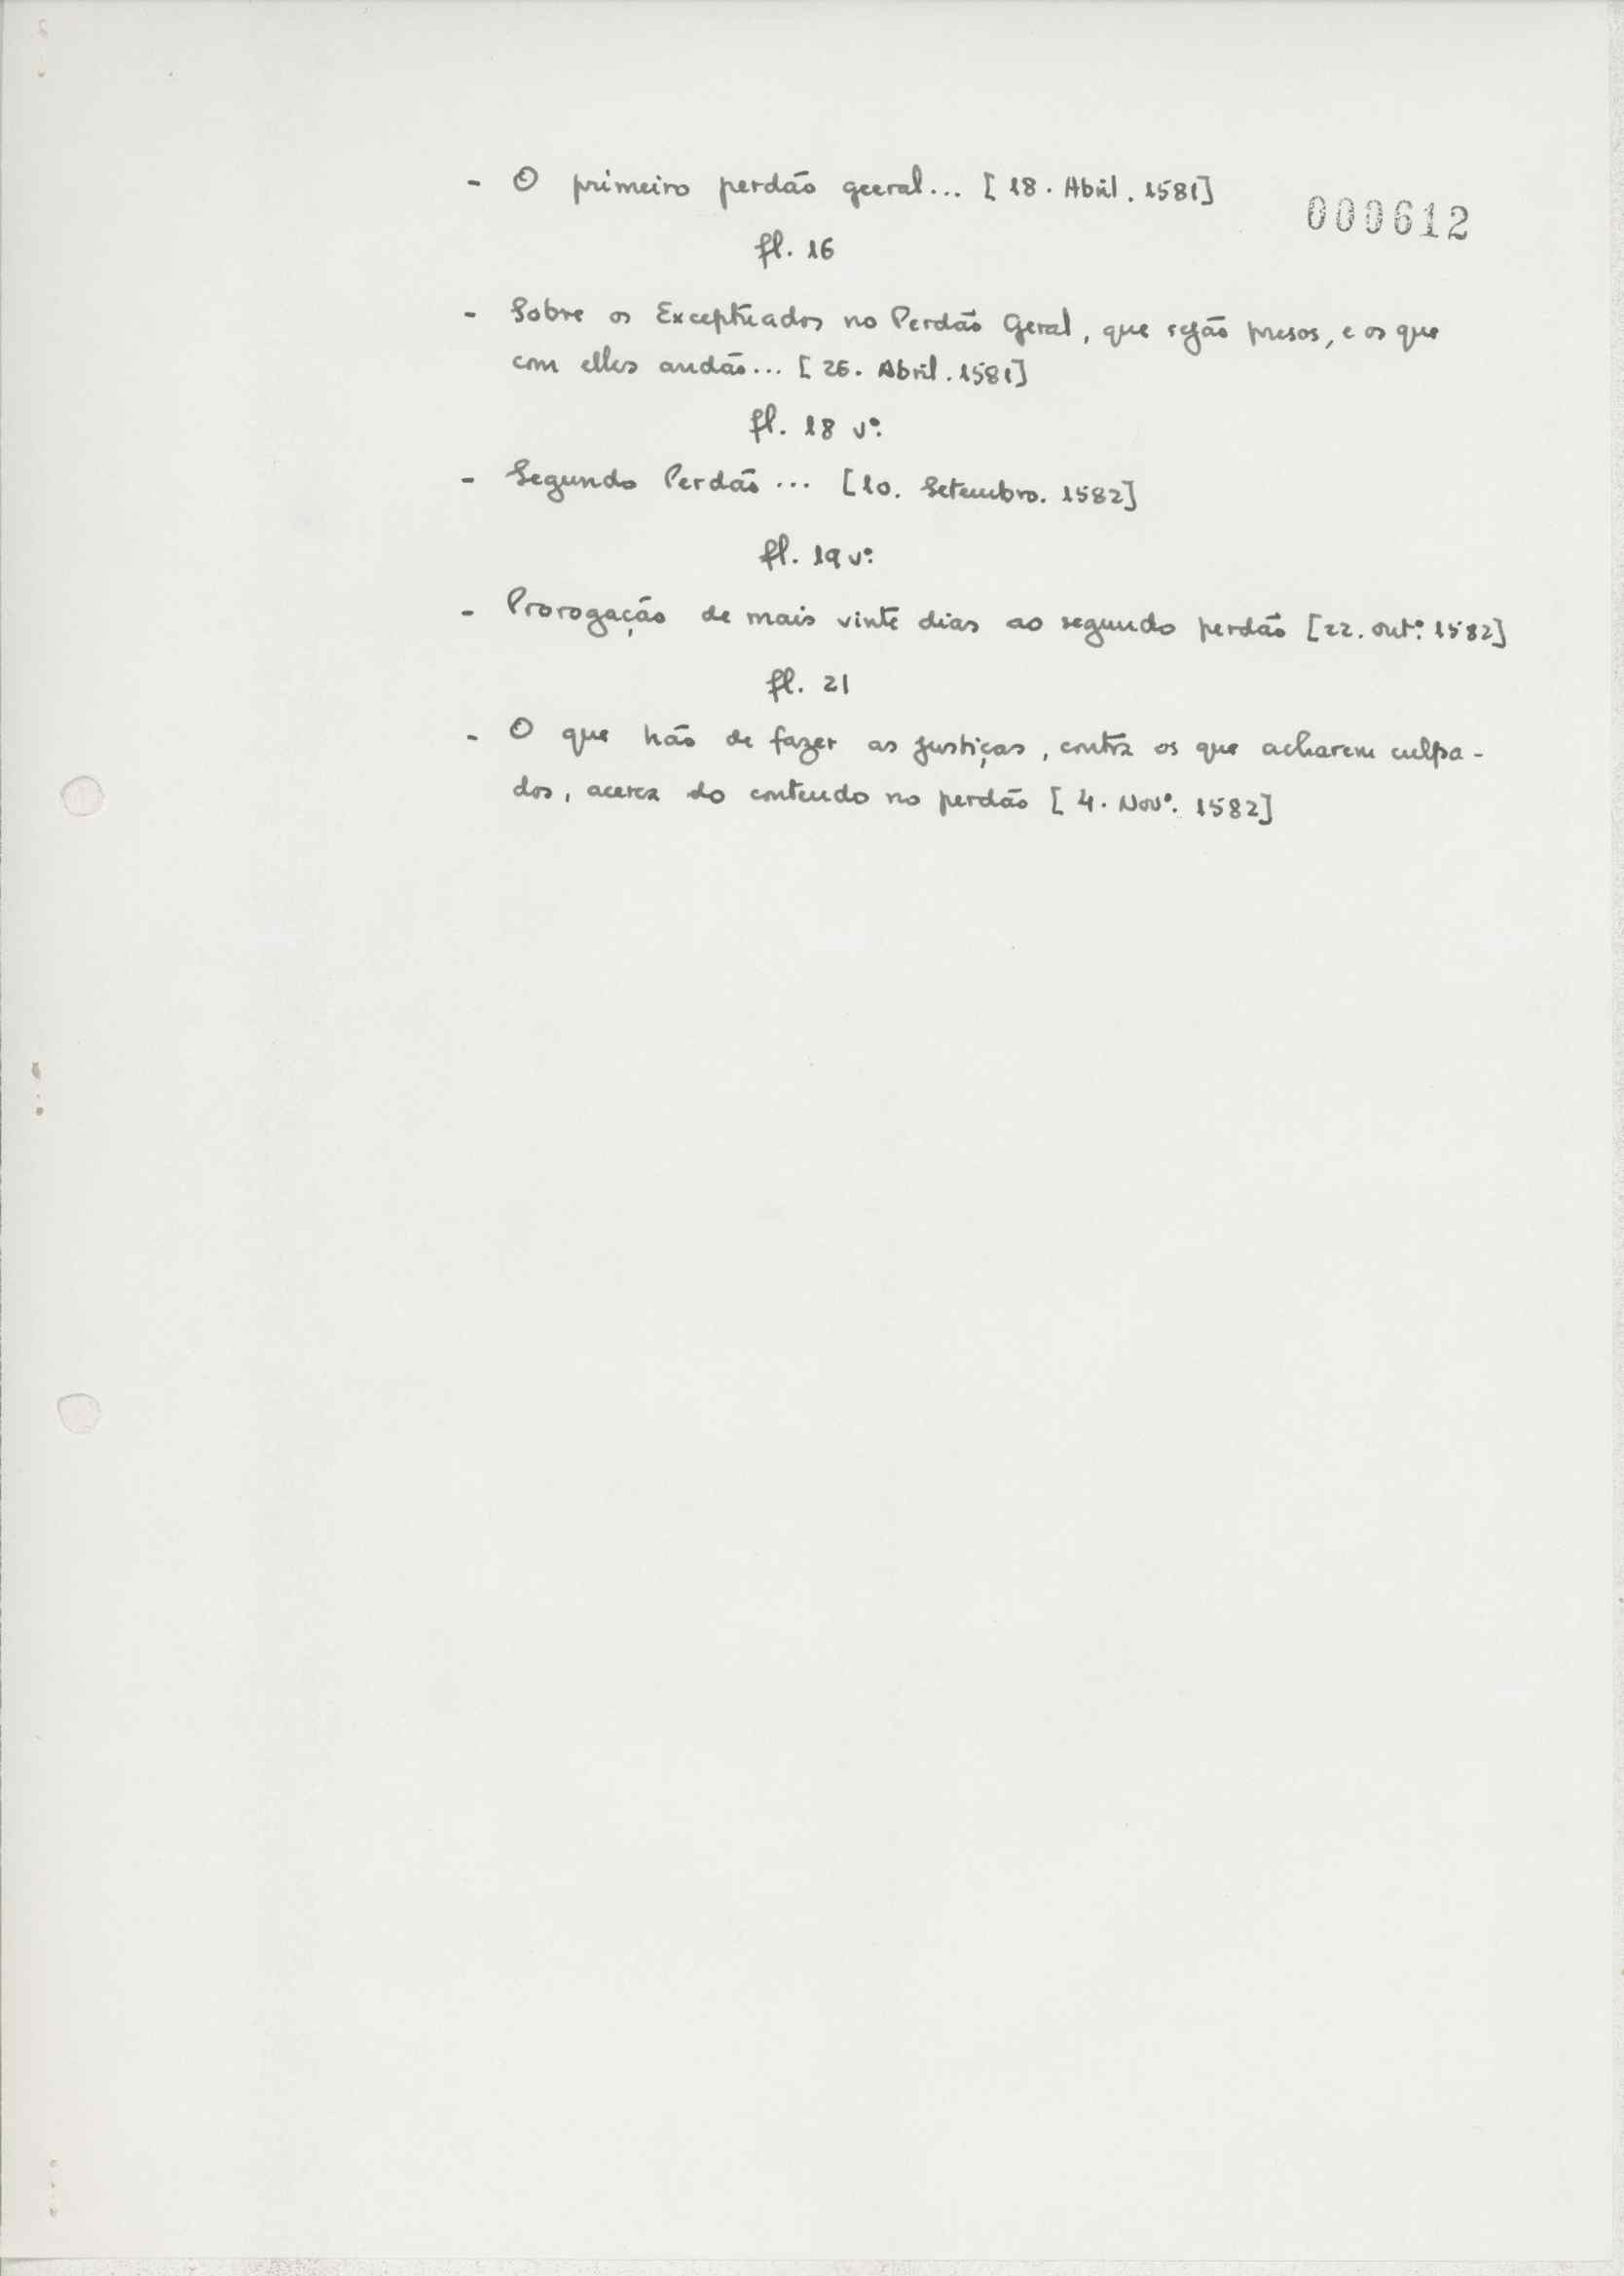 - O primeiro perdão geeral... [18. Abril. 1581]
000612
fl. 16
- Sobre os Exceptuados no Perdão Geral, que sejão presos, e os que
com elles andão... [26. Abril. 1581]
fl. 18 vº.
- Segundo Perdão... [10. Setembro. 1582]
fl. 19 vº.
- Prorogação de mais vinte dias ao segundo perdão [22. outº. 1582]
fl. 21
- O que hão de fazer as justiças, contra os que acharem culpa-
dos, acerca do conteudo no perdão [4. Novº. 1582]